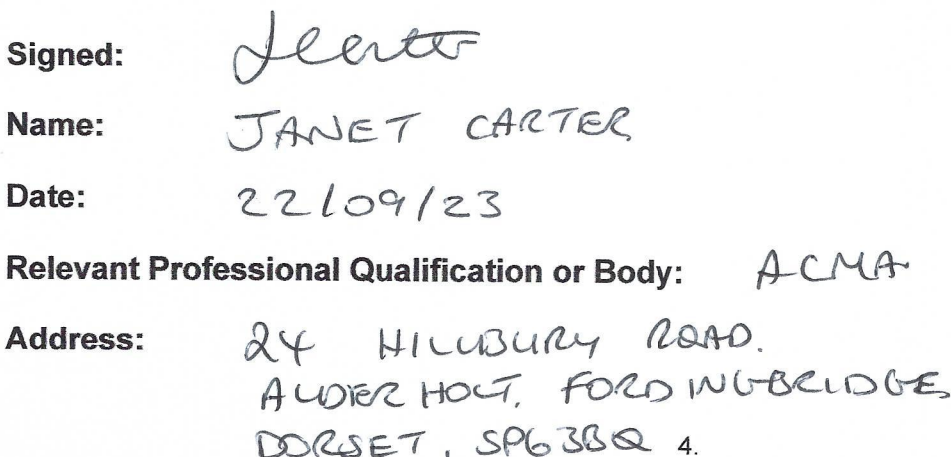 Signed: JCarter
Name: JANET CARTER
Date: 22/09/23
Relevant Professional Qualification or Body: ACMA
Address: 24 HILLBURY ROAD.
ALDERHOLT, FORDINGBRIDGE,
DORSET, SP6 3BQ 4.